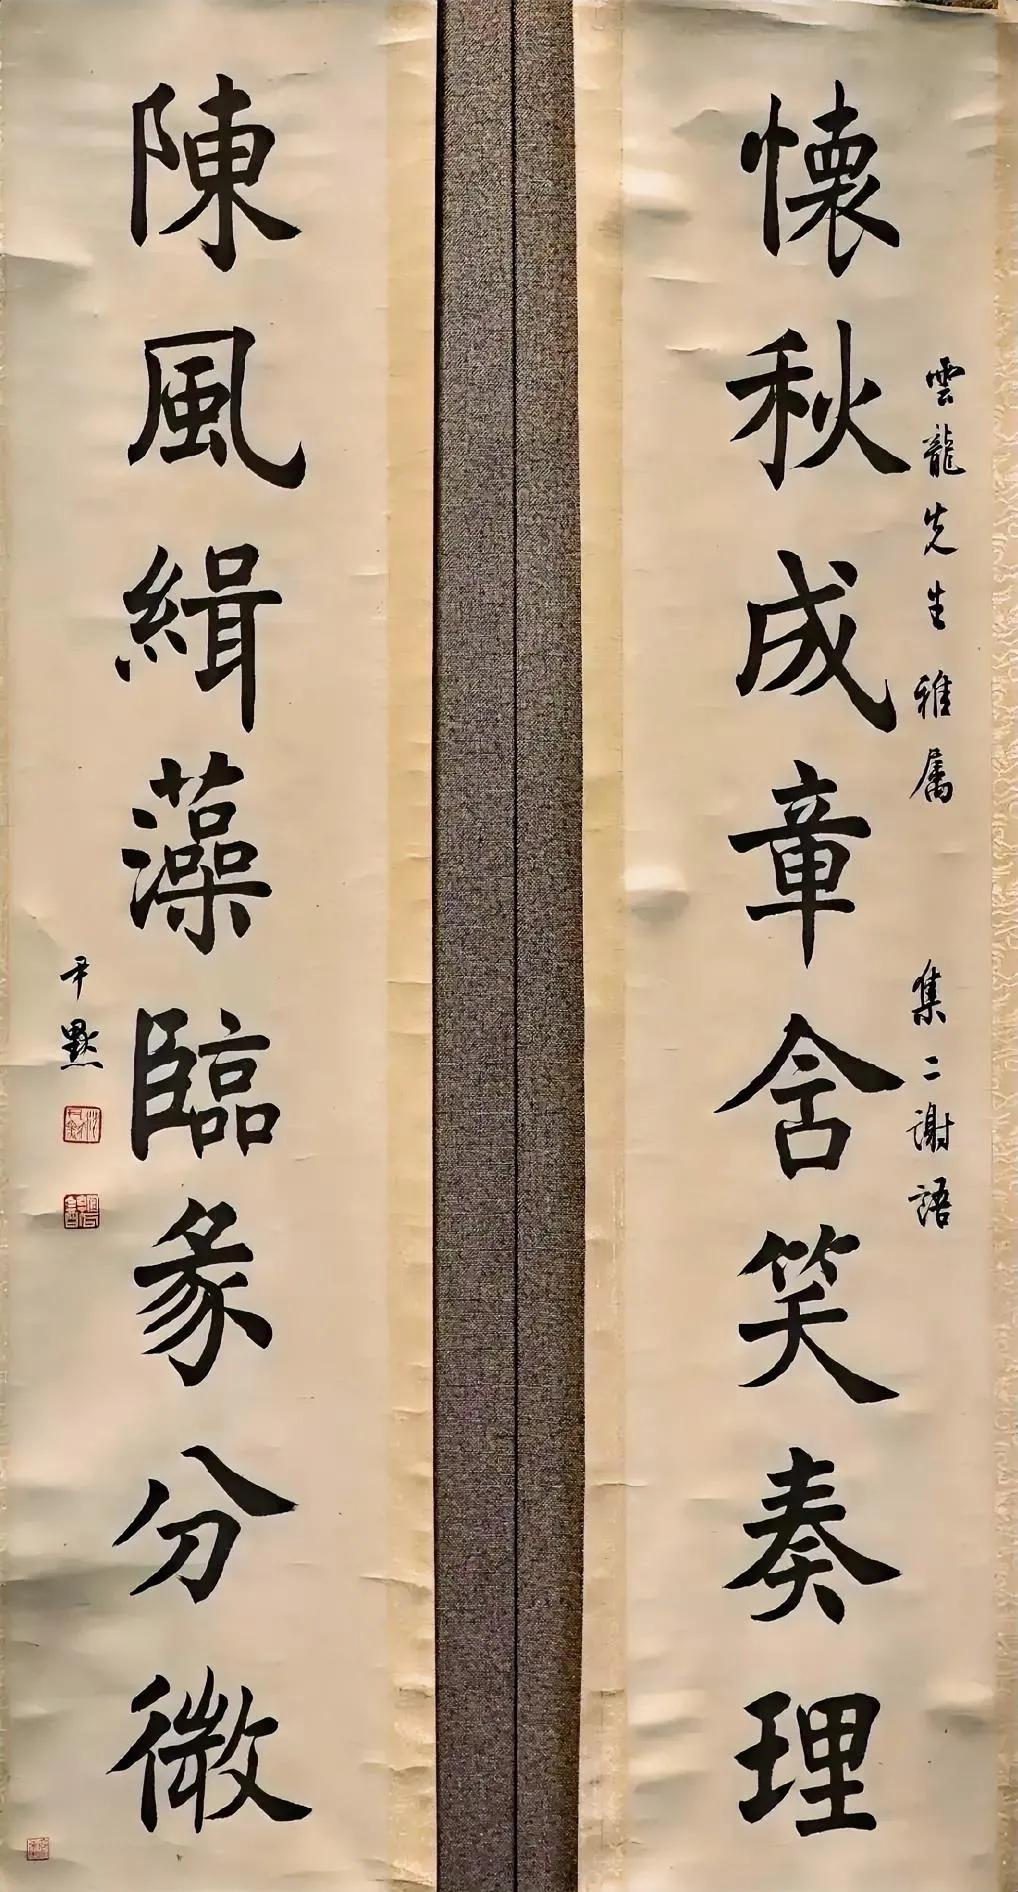 雲龍先生雅属 集二謝語
懷秋成章含笑奏理
陳風緝藻臨彖分微
尹默